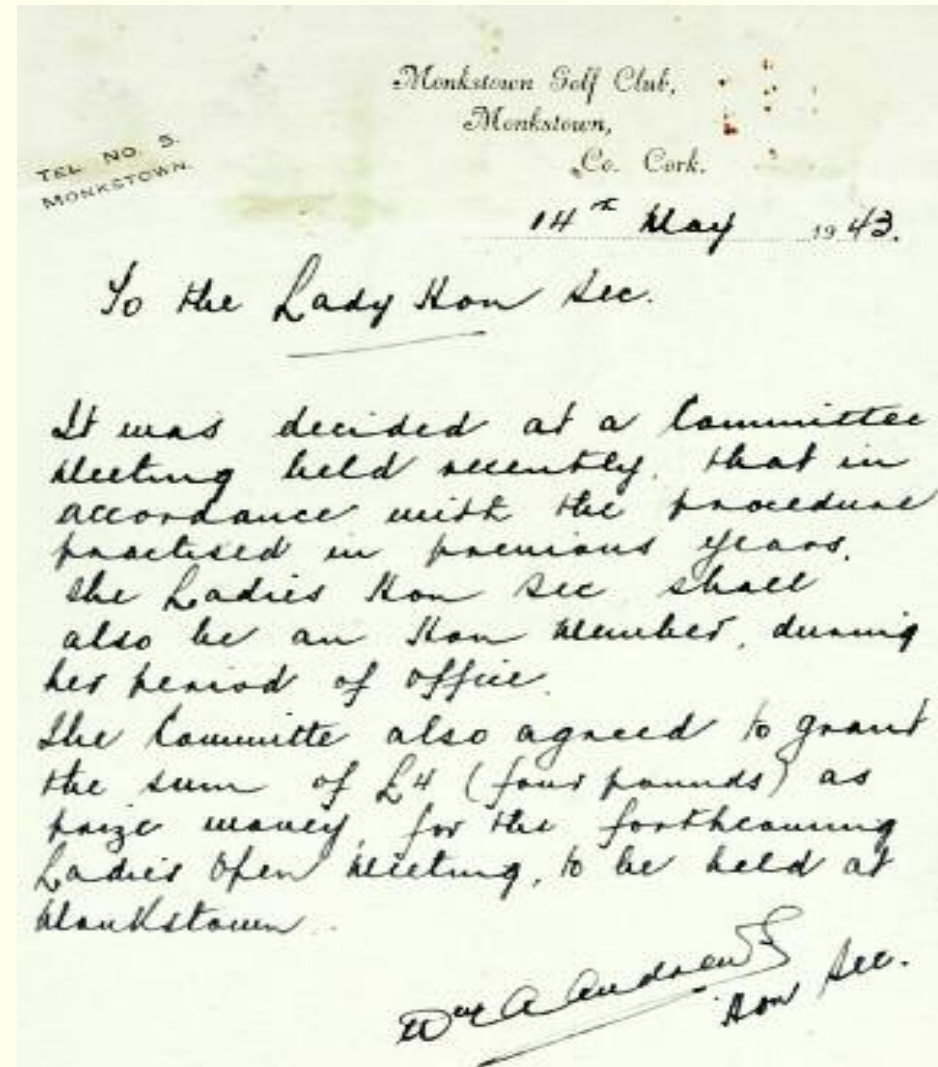 Monkstown Golf Club,
Monkstown,
Co. Cork.
TEL. NO. 5.
MONKSTOWN.
14th May 1943.
To the Lady Hon Sec.
It was decided at a Committee
Meeting held recently, that in
accordance with the procedure
practised in previous years,
the Ladies Hon Sec shall
also be an Hon Member, during
her period of office.
The Committe also agreed to grant
the sum of £4 (four pounds) as
prize money, for the forthcoming
Ladies Open Meeting, to be held at
Monkstown.
Wm A Andrews
Hon Sec.